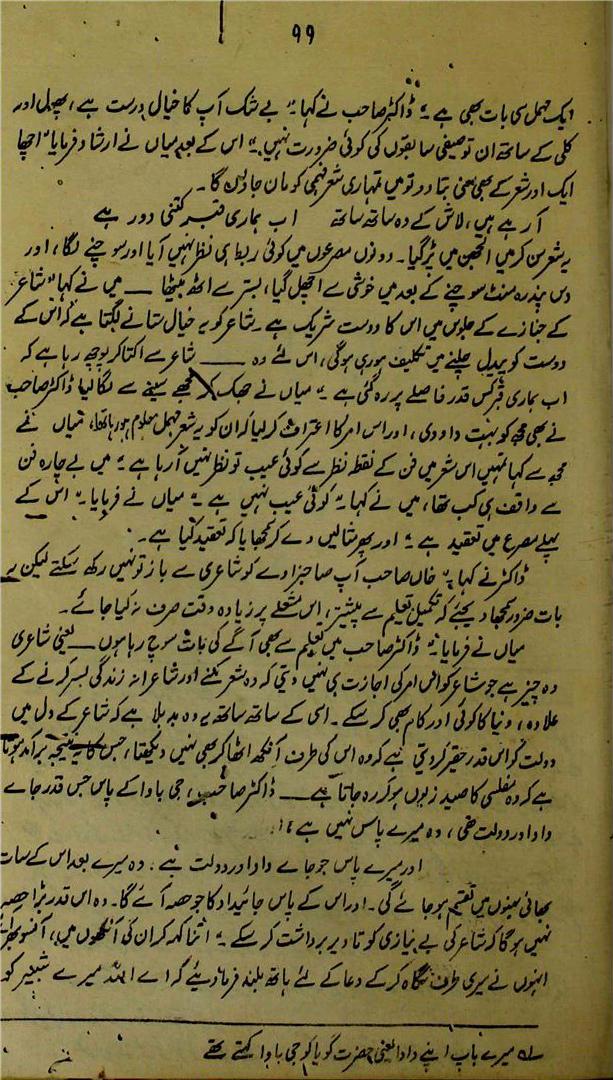 ۹۹
ایک مہمل سی بات بھی ہے ۔" ڈاکٹر صاحب نے کہا "بے شک آپ کا خیال درست ہے ، پھول اور
کلی کے ساتھ ان توصیفی سابقوں کی کوئی ضرورت نہیں ۔" اس کے بعد میاں نے ارشاد فرمایا "اچھا
ایک اور شعر کے بھی معنی بتا دو تو میں تمہاری شعر فہمی کو مان جاؤں گا ۔
آ رہے ہیں، لاش کے وہ ساتھ ساتھ    اب ہماری قبر کتنی دور ہے
یہ شعر سن کر میں الجھن میں پڑ گیا ۔ دونوں مصرعوں میں کوئی ربط ہی نظر نہیں آیا اور سوچنے لگا ، اور
دس پندرہ منٹ سوچنے کے بعد میں خوشی سے اچھل گیا، بستر سے اٹھ بیٹھا ـــ میں نے کہا "شاعر
کے جنازے کے جلوس میں اس کا دوست شریک ہے ۔ شاعر کو یہ خیال ستانے لگتا ہے کہ اس کے
دوست کو پیدل چلنے میں تکلیف ہو رہی ہوگی، اس لئے وہ ـــ شاعر سے اکتا کر پوچھ رہا ہے کہ
اب ہماری قبر کس قدر فاصلے پر رہ گئی ہے ۔" میاں نے جھک کر مجھے سینے سے لگا لیا ڈاکٹر صاحب
نے بھی مجھ کو بہت داد دی ، اور اس امر کا اعتراف کر لیا کہ ان کو یہ شعر مہمل معلوم ہو رہا تھا، میاں نے
مجھ سے کہا تمہیں اس شعر میں فن کے نقطہ نظر سے کوئی عیب تو نظر نہیں آ رہا ہے ۔" میں بے چارہ فن
سے واقف ہی کب تھا، میں نے کہا ۔" کوئی عیب نہیں ہے ۔" میاں نے فرمایا ۔" اس کے
پہلے مصرع میں تعقید ہے ۔" اور پھر مثالیں دے کر سمجھایا کہ تعقید کیا ہے ۔
ڈاکٹر نے کہا ۔" خاں صاحب آپ صاحبزادے کو شاعری سے باز تو نہیں رکھ سکتے لیکن یہ
بات ضرور سمجھا دیجئے کہ تکمیل تعلیم سے پیشتر ، اس مشغلے پر زیادہ وقت صرف نہ کیا جائے ۔
میاں نے فرمایا ۔" ڈاکٹر صاحب میں تعلیم سے بھی آگے کی بات سوچ رہا ہوں ـــ یعنی شاعری
وہ چیز ہے جو شاعر کو اس امر کی اجازت ہی نہیں دیتی کہ وہ شعر کہنے اور شاعرانہ زندگی بسر کرنے کے
علاوہ ، دنیا کا کوئی اور کام بھی کر سکے ۔ اسی کے ساتھ ساتھ یہ وہ بد بلا ہے کہ شاعر کے دل میں
دولت کو اس قدر حقیر کر دیتی ہے کہ وہ اس کی طرف آنکھ اٹھا کر بھی نہیں دیکھتا ، جس کا یہ نتیجہ برآمد ہوتا
ہے کہ وہ مفلسی کا صید زبوں ہو کر رہ جاتا ہے ـــ ڈاکٹر صاحب ، جی باوا کے پاس جس قدر جائے
داد اور دولت تھی ، وہ میرے پاس نہیں ہے
اور میرے پاس جو جائے داد اور دولت ہے ۔ وہ میرے بعد اس کے سات
بھائی بہنوں میں تقسیم ہو جائے گی ۔ اور اس کے پاس جائیداد کا جو حصہ آئے گا ۔ وہ اس قدر بڑا حصہ
نہیں ہوگا کہ شاعر کی بے نیازی کو تا دیر برداشت کر سکے ۔" اتنا کہہ کر ان کی آنکھوں میں، آنسو بھر
انہوں نے میری طرف نگاہ کر کے دعا کے لئے ہاتھ بلند فرما دیئے کہ اے اللہ میرے شبیر کو
لہ میرے باپ اپنے دادا یعنی حضرت گویا کو جی باوا کہتے تھے